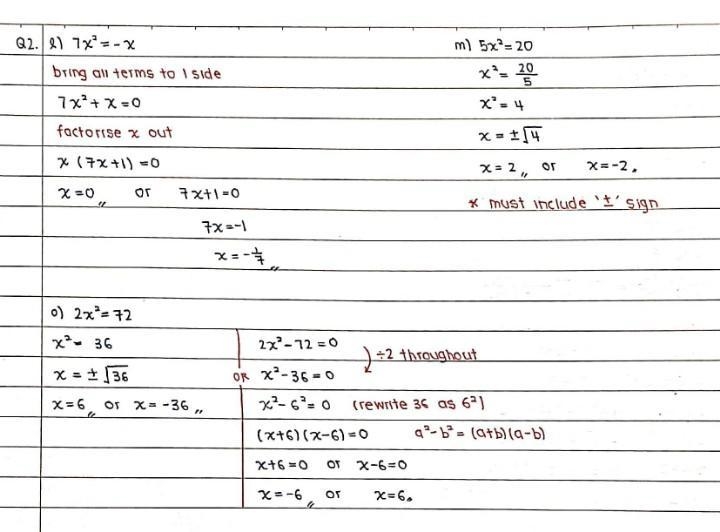 Q2. l) 7x² = -x
bring all terms to 1 side
7x² + x = 0
factorise x out
x (7x+1) = 0
x = 0 or 7x+1=0
7x=-1
x = -1/7
m) 5x² = 20
x² = 20/5
x² = 4
x = ±√4
x = 2 or x = -2
* must include '±' sign
o) 2x² = 72
x² = 36
x = ±√36
x = 6 or x = -36
OR
2x² - 72 = 0
÷2 throughout
x² - 36 = 0
x² - 6² = 0 (rewrite 36 as 6²)
(x+6)(x-6) = 0 a²-b² = (a+b)(a-b)
x+6=0 or x-6=0
x = -6 or x=6